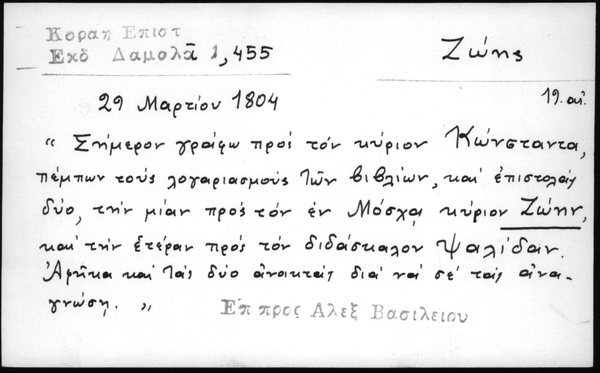 Κοραη Επιστ
Εκδ Δαμαλᾶ 1, 455
Ζώης
29 Μαρτίου 1804
19. αἰ.
" Σήμερον γράφω πρός τόν κύριον Κώνσταντα,
πέμπων τούς λογαριασμούς τῶν βιβλίων, καί ἐπιστολάς
δύο, τήν μίαν πρός τόν ἐν Μόσχᾳ κύριον Ζώην,
καί τήν ἑτέραν πρός τόν διδάσκαλον Ψαλίδαν.
Ἀφῆκα καί τάς δύο ἀνοικτάς διά νά σέ τάς ἀνα-
γνώσῃ. "
Επ προς Αλεξ Βασιλειου